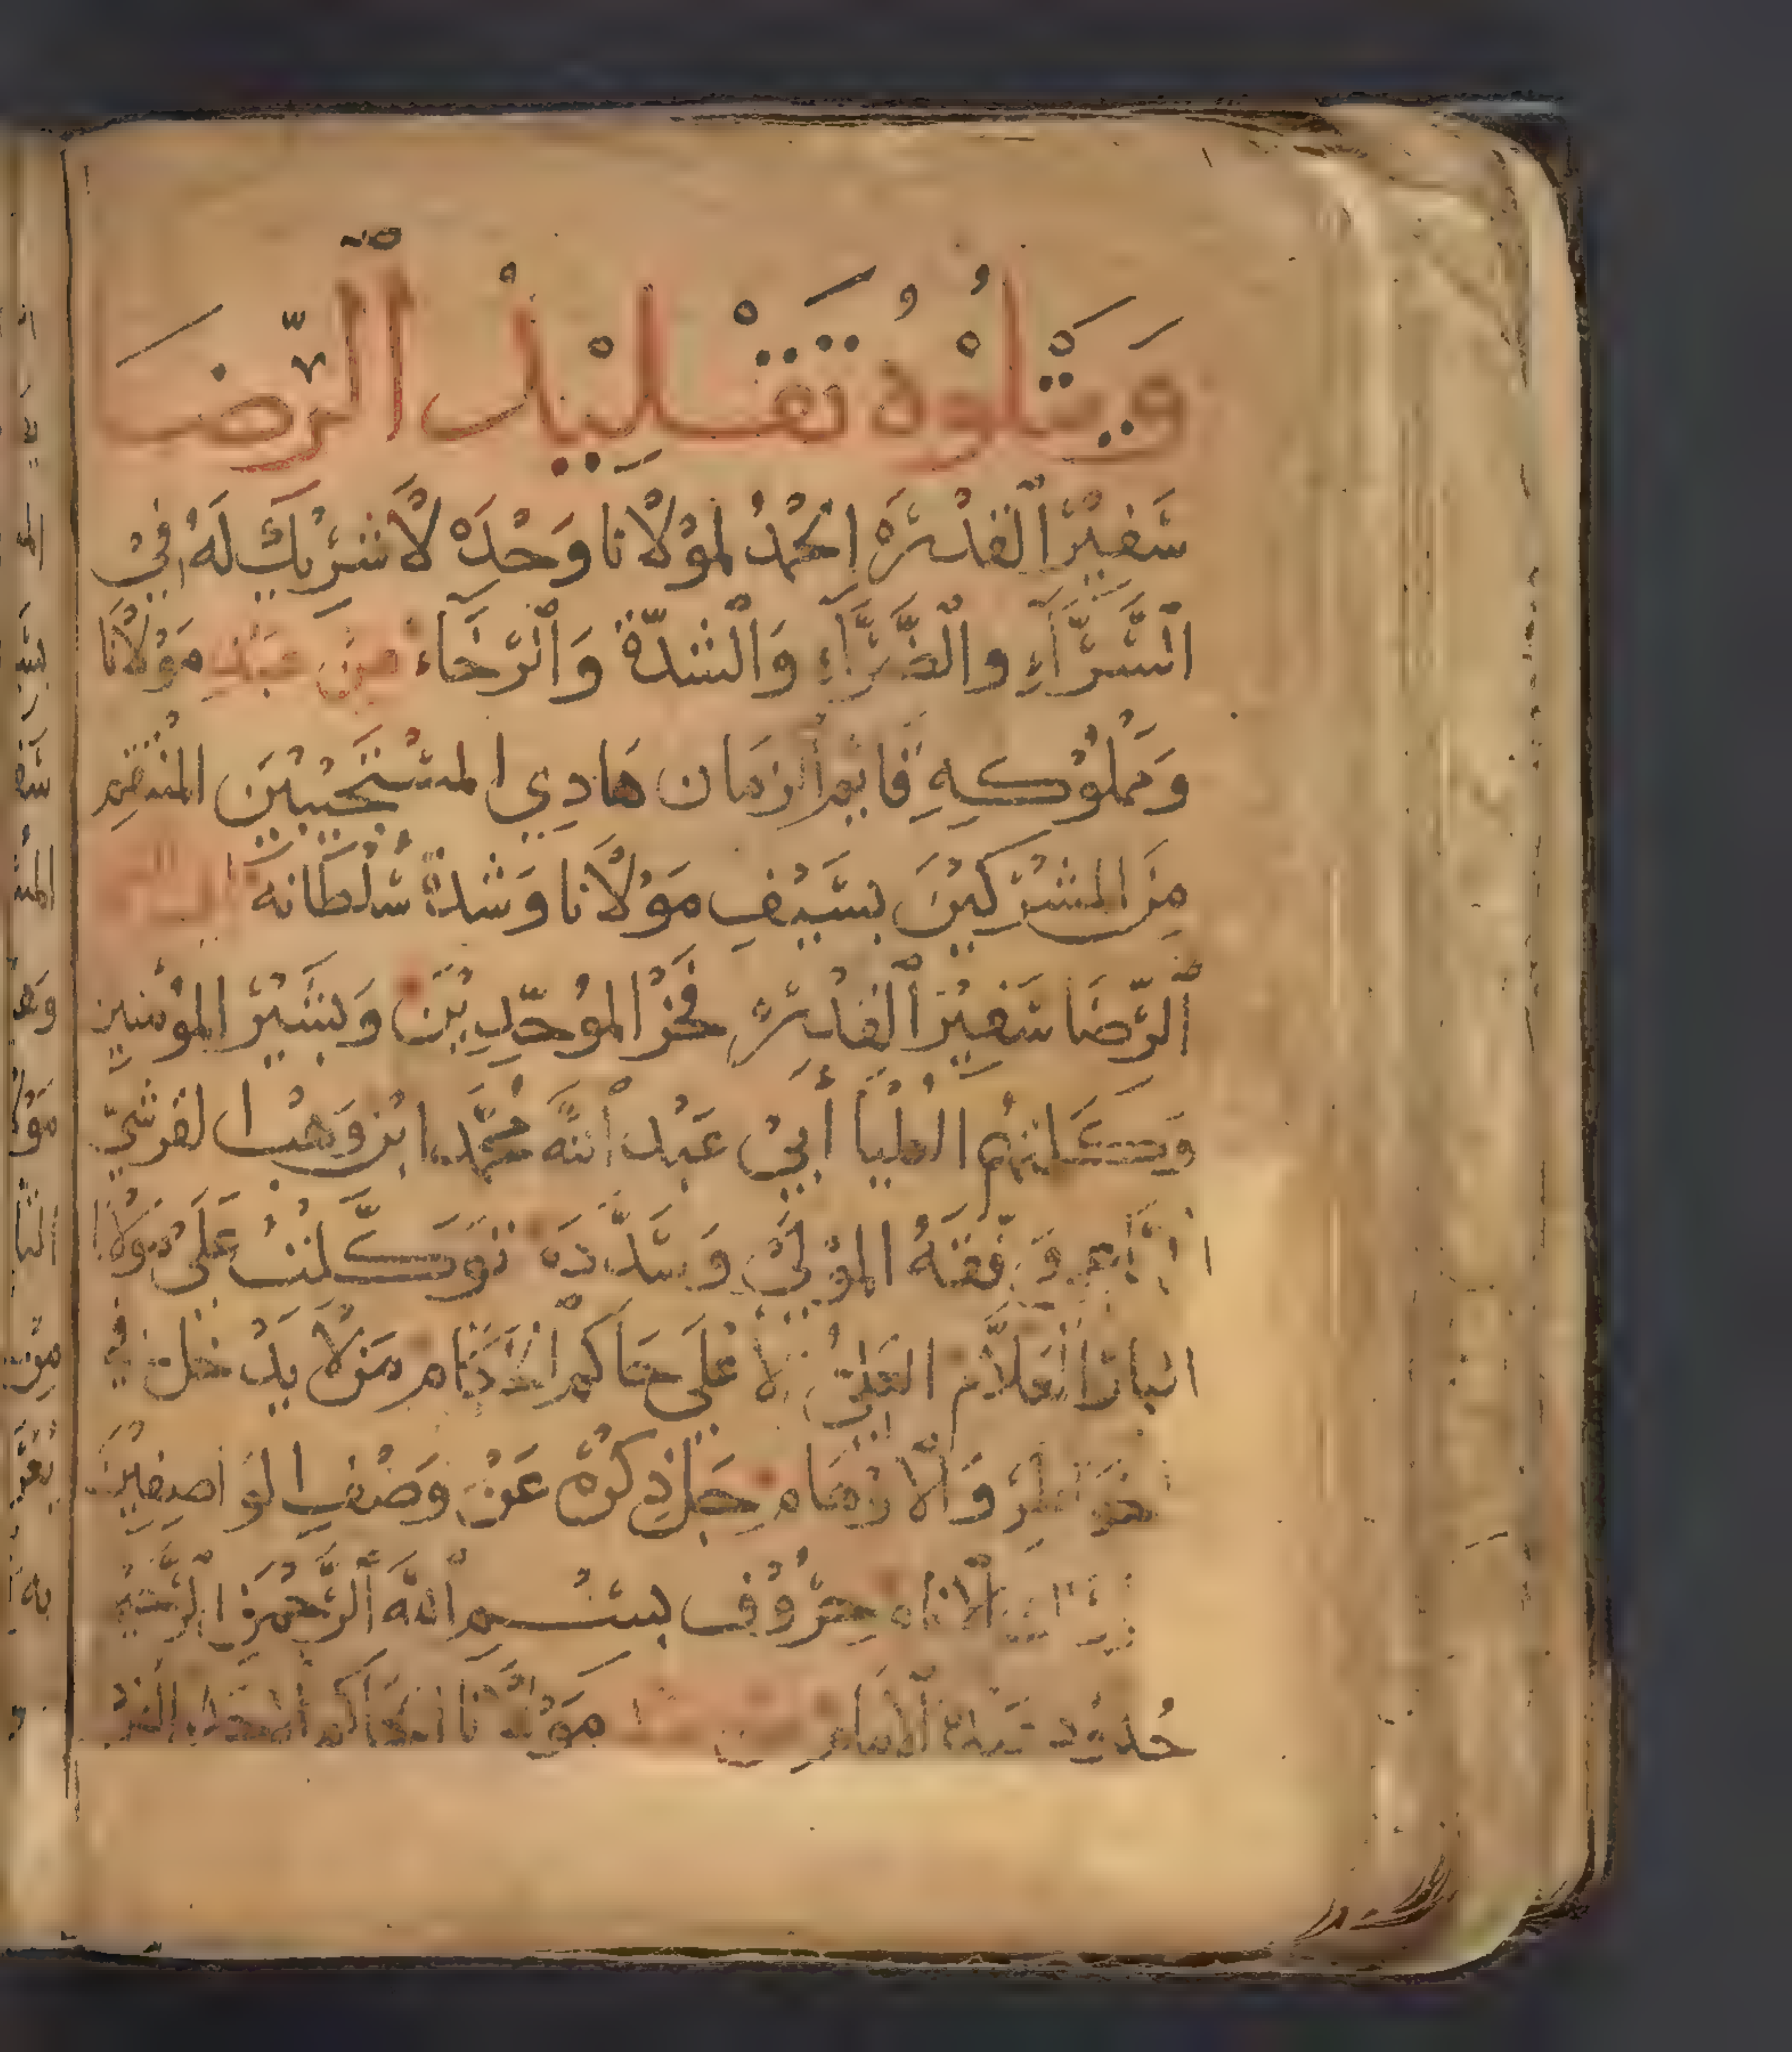 وَيَتْلُوْهُ تَقْلِيْدُ ٱلرِّضَا
سَفِيْرُ ٱلْقُدْرَةْ الحَمْدُ لمَوْلَانا وَحْدَهْ لَا شَرِيْكَ لَهُ فِيْ
السَّرَّآءِ والضَّرَّآءِ وَالْشدّة وَٱلْرَّخَآء مِن عَبْدِ مَوْلَانَا
وَمَمْلُوْكِهِ قَايم الزمَان هَادِي المسْتَجِيْبِيْنَ المنْتَقِم
مِنَ المشْركيْنَ بسَيْفِ مَوْلَانا وَشدة سُلْطانه
الرِّضَا سَفِيْرُ ٱلقُدْرَةْ فخْر الموُحّدِيْنَ وَبَشِيْر المؤمنين
وَكلمتهُ العُلْيَا أَبِيْ عَبْد ٱلله مُحَمَّد ابْن وَهْب القرشيّ
وَفّقَهُ المَوْلَى وَسَدَّدَهْ تَوَكَّلْتُ عَلَى مَوْلَانا
البار العَلَّام العَلِيُّ الأعْلَى حَاكم الحكّام مَن لَا يَدْخل في
الخَوَاطر وَالأَوْهَام جَلّ ذِكرُهْ عَنْ وَصْفِ الوَاصفِيْنَ
حُرُوْف بسْمِ ٱللّه ٱلرَّحْمَن الرَّحِيْم
حُدُوْد الامَام مَوْلَانَا الحَاكم